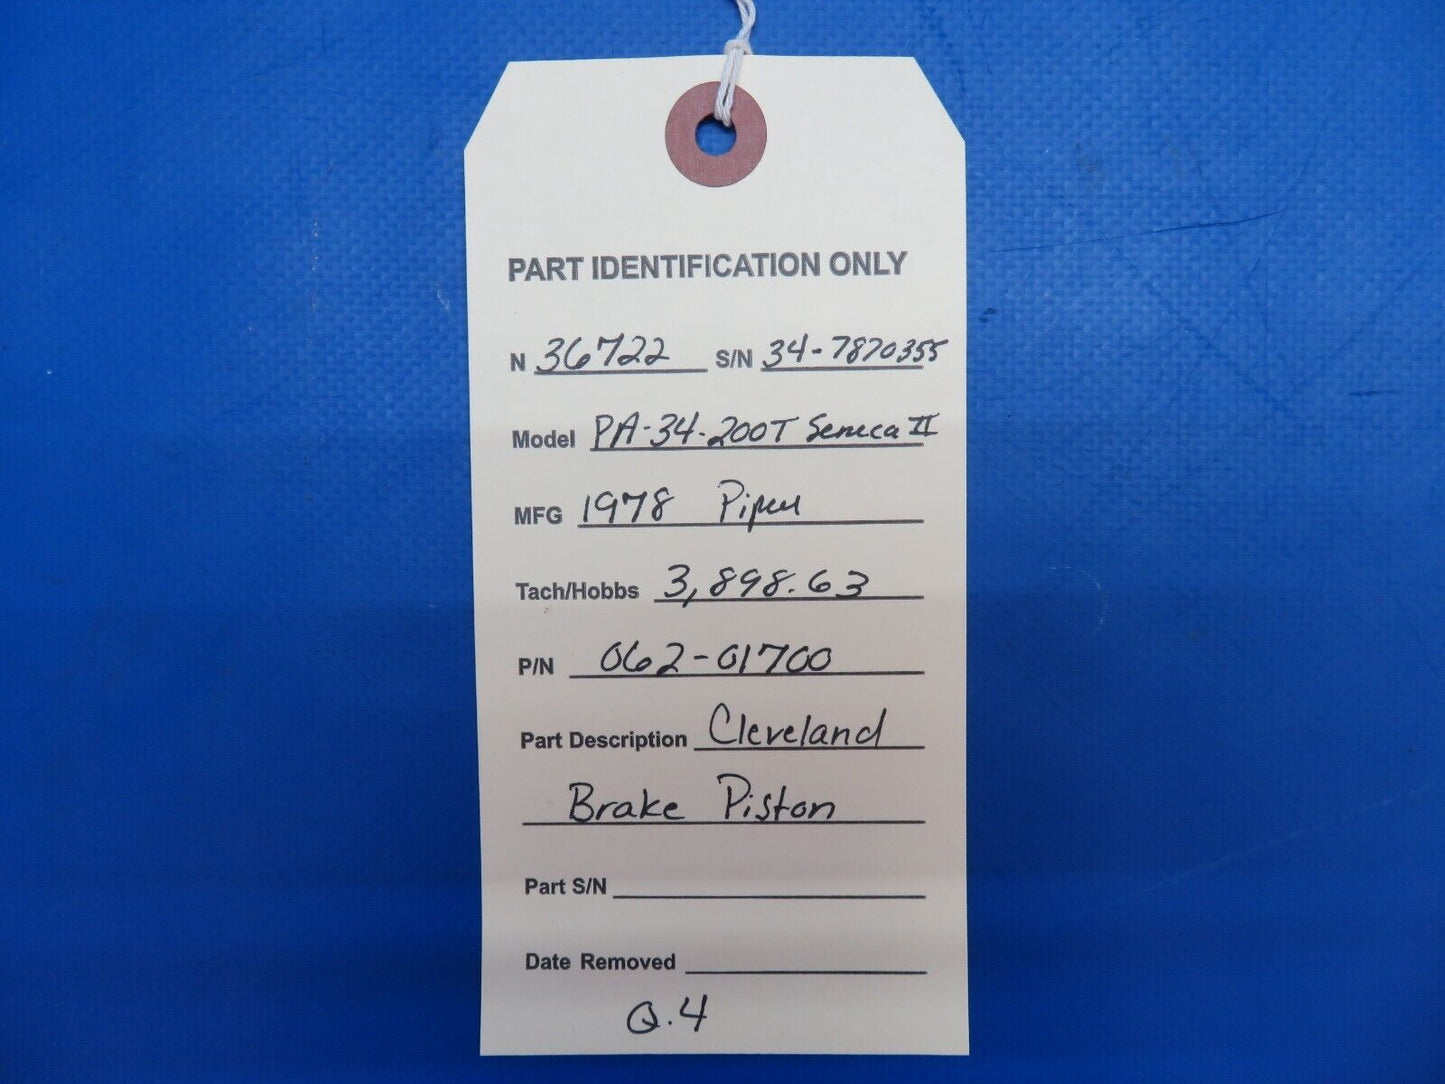 PART IDENTIFICATION ONLY
N 36722 S/N 34-7870355
Model PA-34-200T Seneca II
MFG 1978 Piper
Tach/Hobbs 3,898.63
P/N 062-01700
Part Description Cleveland
Brake Piston
Part S/N
Date Removed
Q.4